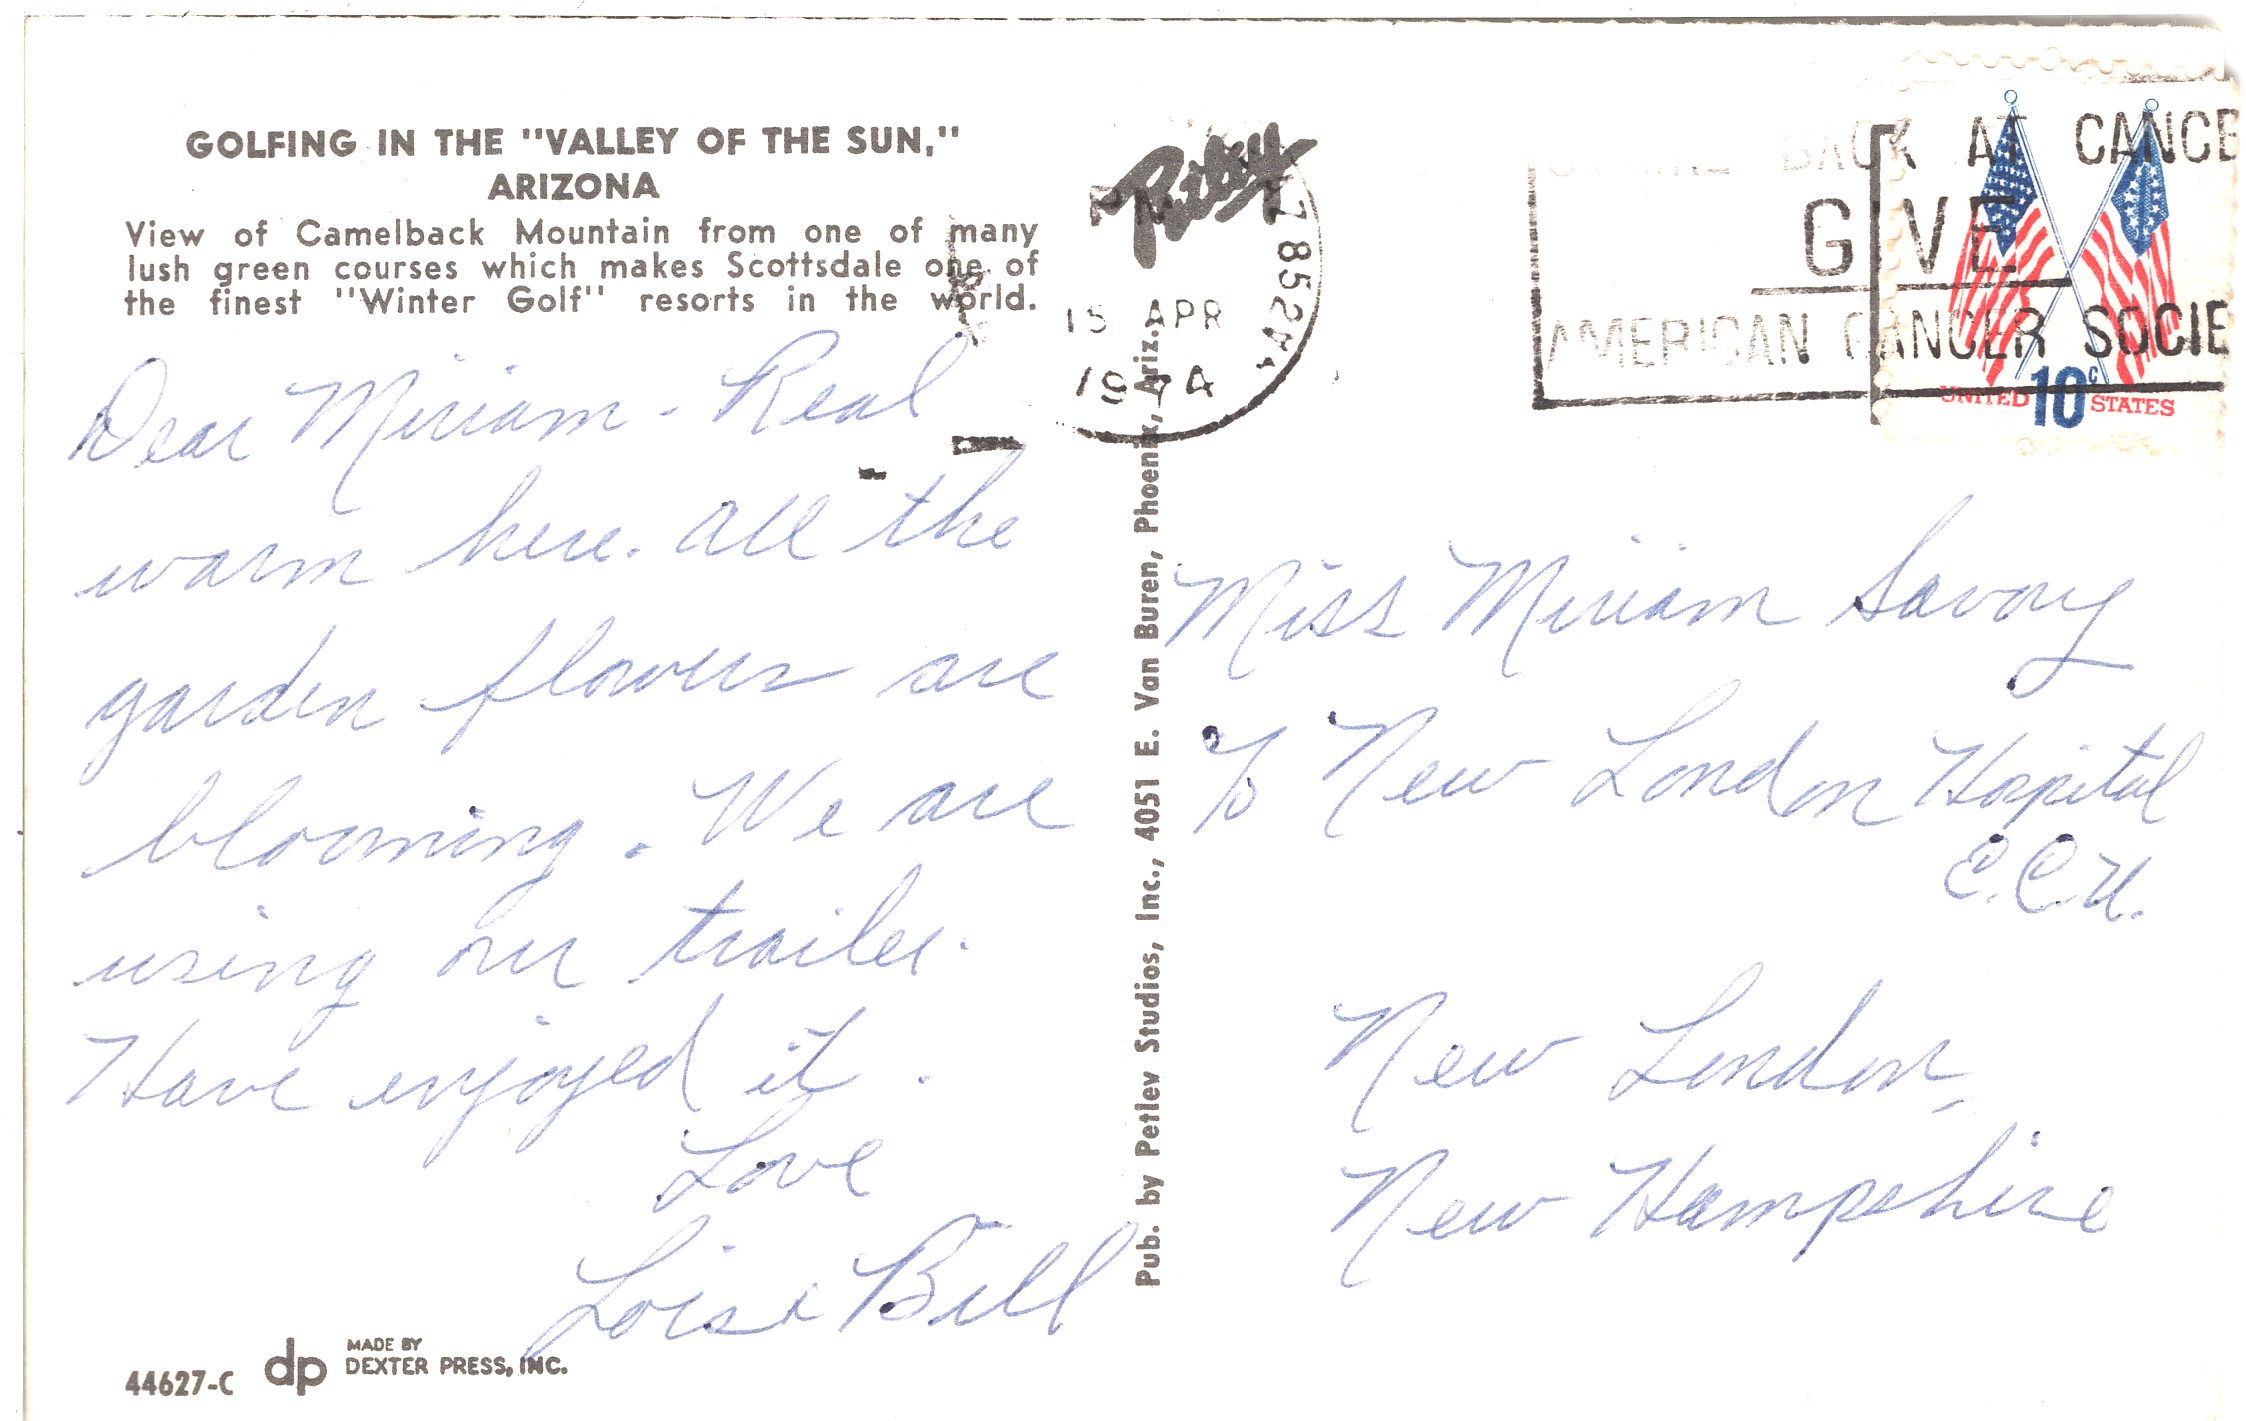 GOLFING IN THE "VALLEY OF THE SUN,"
ARIZONA
View of Camelback Mountain from one of many
lush green courses which makes Scottsdale one of
the finest "Winter Golf" resorts in the world.
Dear Miriam - Real
warm here. All the
garden flowers are
blooming. We are
using our trailer.
Have enjoyed it.
Love
Lois & Bill
44627-C
dp
MADE BY
DEXTER PRESS, INC.
Pub. by Petley Studios, Inc., 4051 E. Van Buren, Phoenix, Ariz.
Petley
PM
852
15 APR
1974
BACK AT CANCE
GIVE
AMERICAN CANCER SOCIE
UNITED 10c STATES
Miss Miriam Savory
% New London Hospital
E.C.U.
New London,
New Hampshire